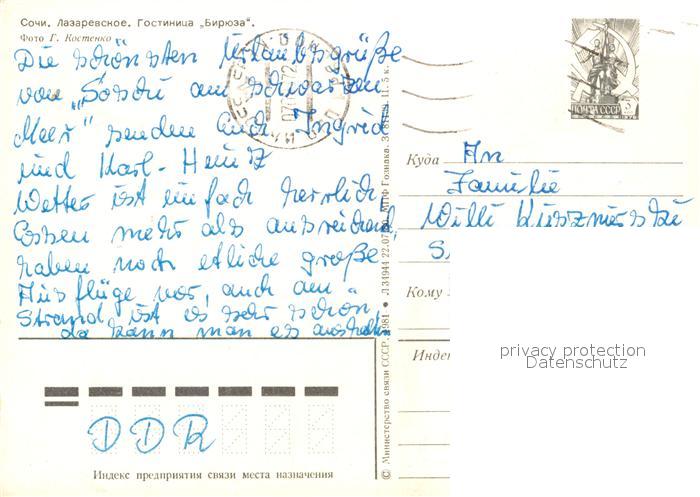 Сочи. Лазаревское. Гостиница „Бирюза".
Фото Г. Костенко
Die schönsten Urlaubsgrüße
von „Sotschi am schwarzen
Meer" senden Euch Ingrid
und Karl-Heinz
Wetter ist einfach herrlich,
Essen mehr als ausreichend,
haben noch etliche große
Ausflüge vor, auch am
Strand ist es sehr schön,
da kann man es aushalten
ПОЧТА СССР
Куда An
Familie
Willi
S
Кому
Индекс
privacy protection
Datenschutz
DDR
Индекс предприятия связи места назначения
© Министерство связи СССР. 1981 ● Л 34944 22.07.80. МПФ Гознака. 11. 5 к.